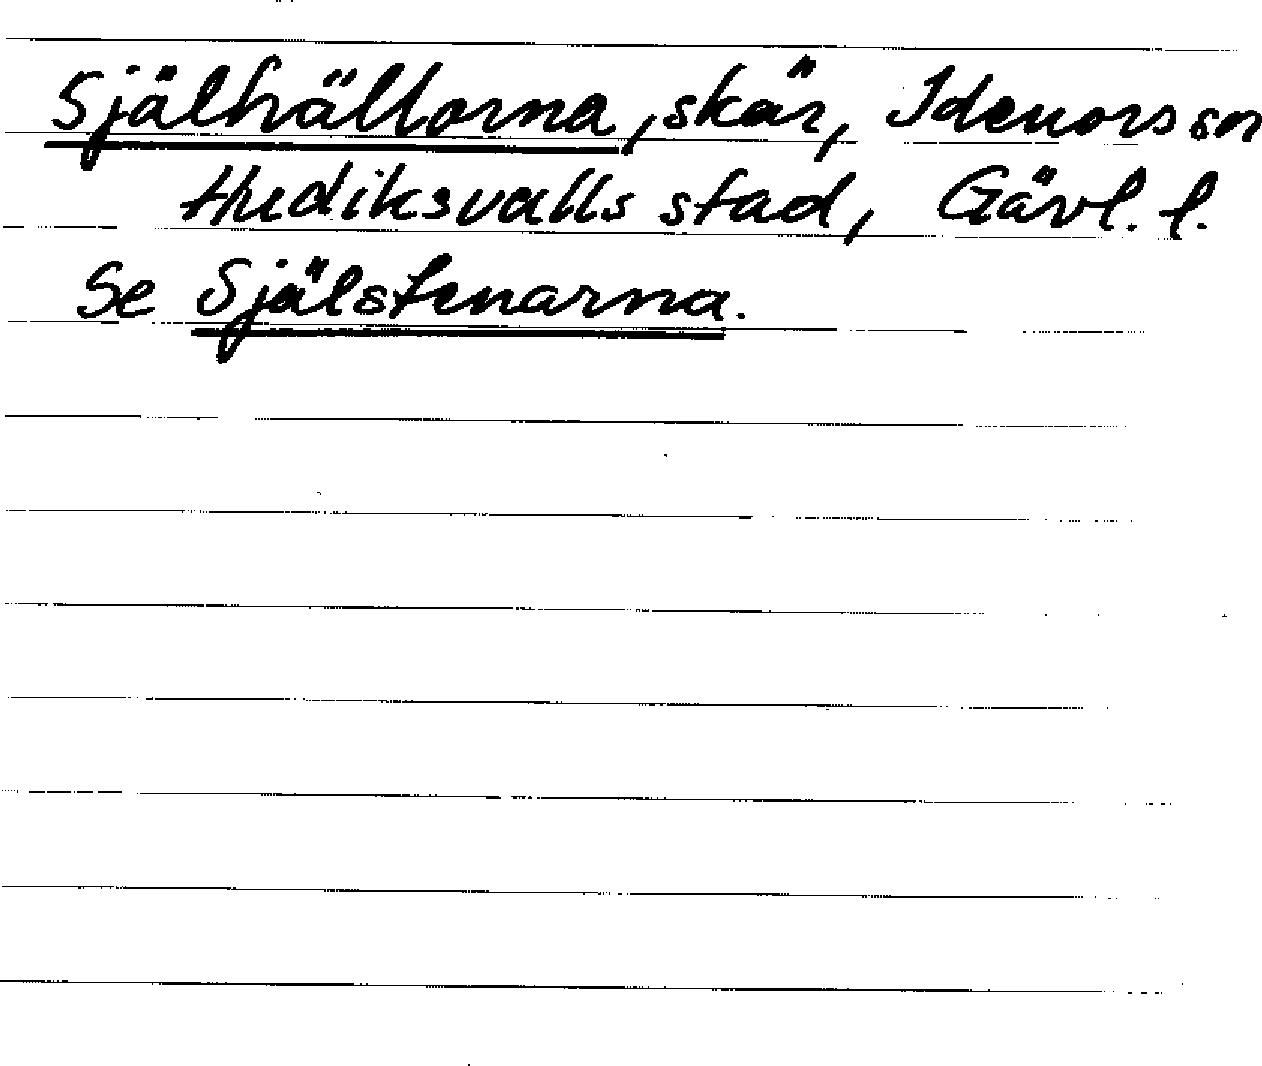 Själhällorna, skär, Idenors sn
Hudiksvalls stad, Gävl. l.
Se Själstenarna.